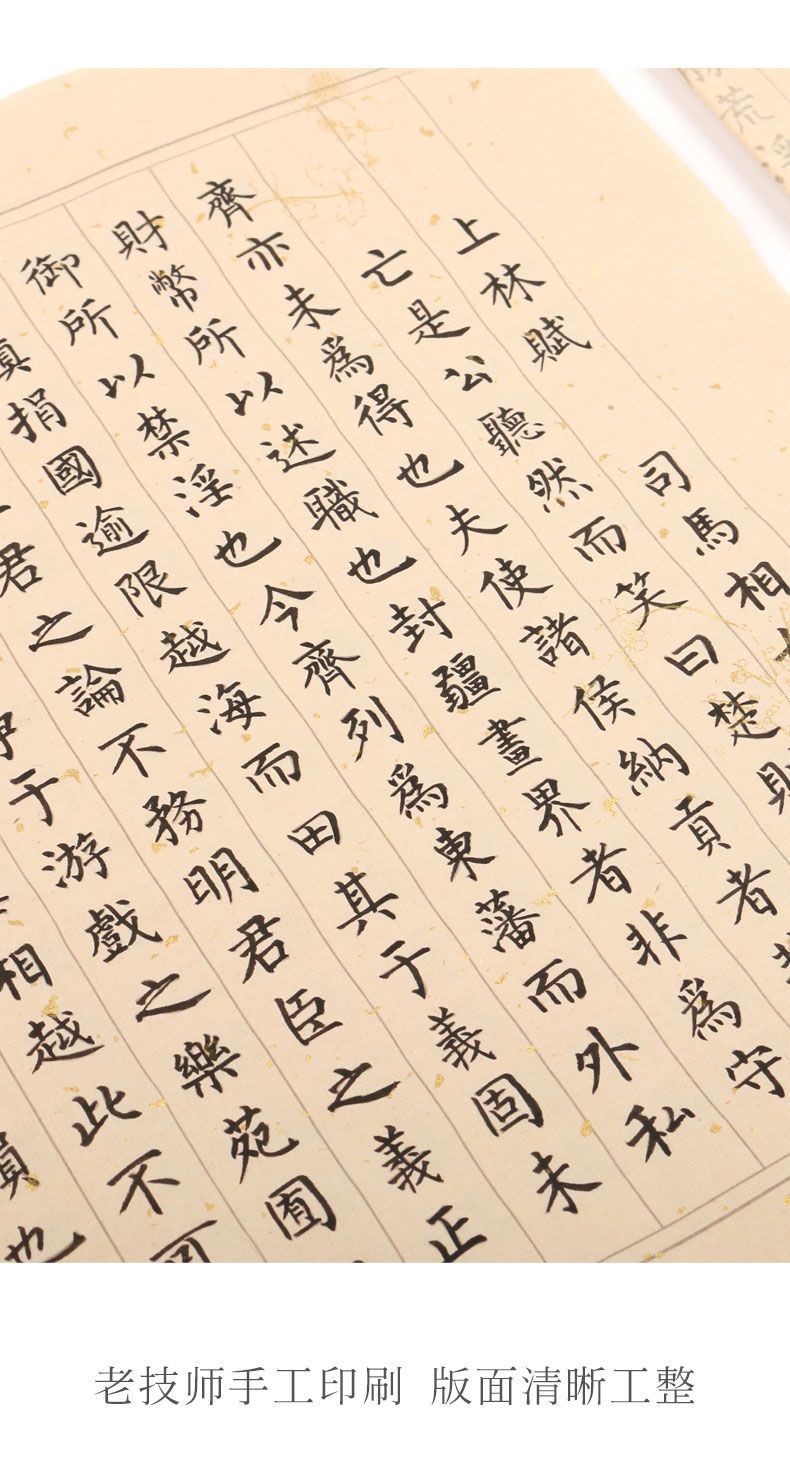 上林賦 司馬相
亡是公聽然而笑曰楚則
齊亦未爲得也夫使諸侯納貢者
財幣所以述職也封疆畫界者非爲守
御所以禁淫也今齊列爲東藩而外私
捐國逾限越海而田其于義固未
君之論不務明君臣之義正
于游戲之樂苑囿
相越此不可
也
荒
老技师手工印刷 版面清晰工整